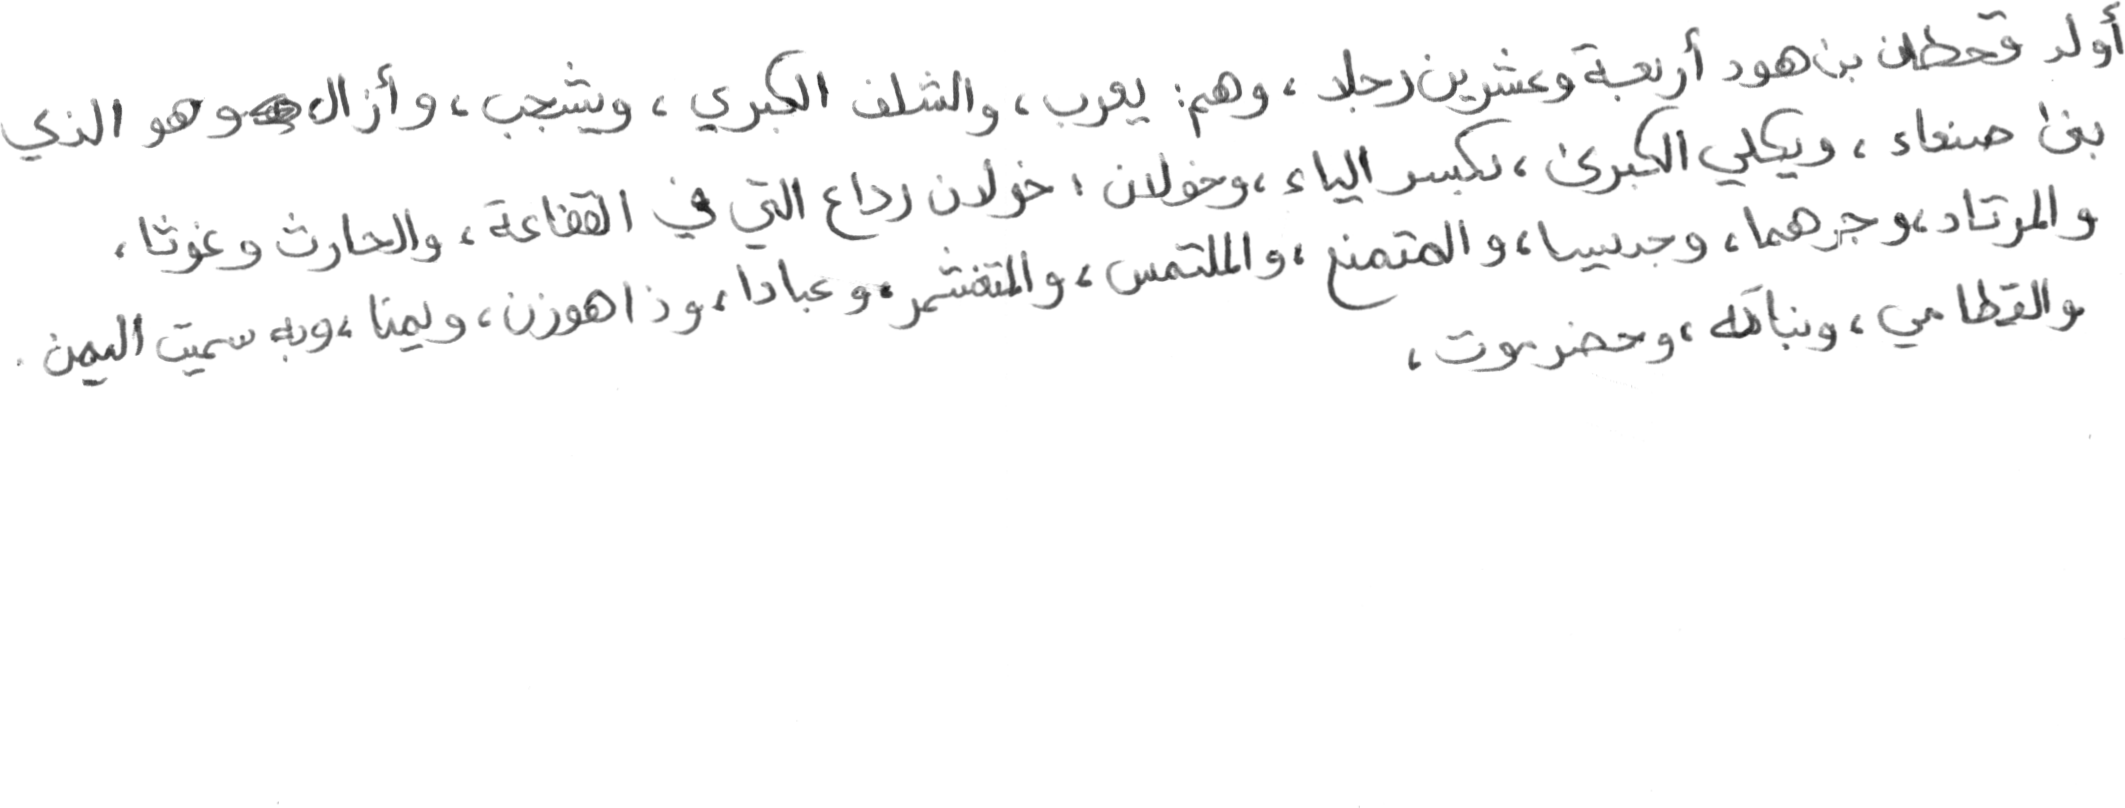 أولد قحطان بن هود أربعة وعشرين رجلا ، وهم: يعرب ، والشلف الكبري ، ويشجب ، وأزال وهو الذي
بنى صنعاء ، ويكلي الكبرى ، بكسر الياء ، وخولان : خولان رداع التي في القفاعة ، والحارث وغوثا ،
والمرتاد ، وجرهما ، وجديسا ، والمتمنع ، والملتمس ، والمتغشمر ، وعبادا ، وذا هوزن ، ويمنا ، وبه سميت اليمن .
والقطامي ، ونباتة ، وحضرموت ،